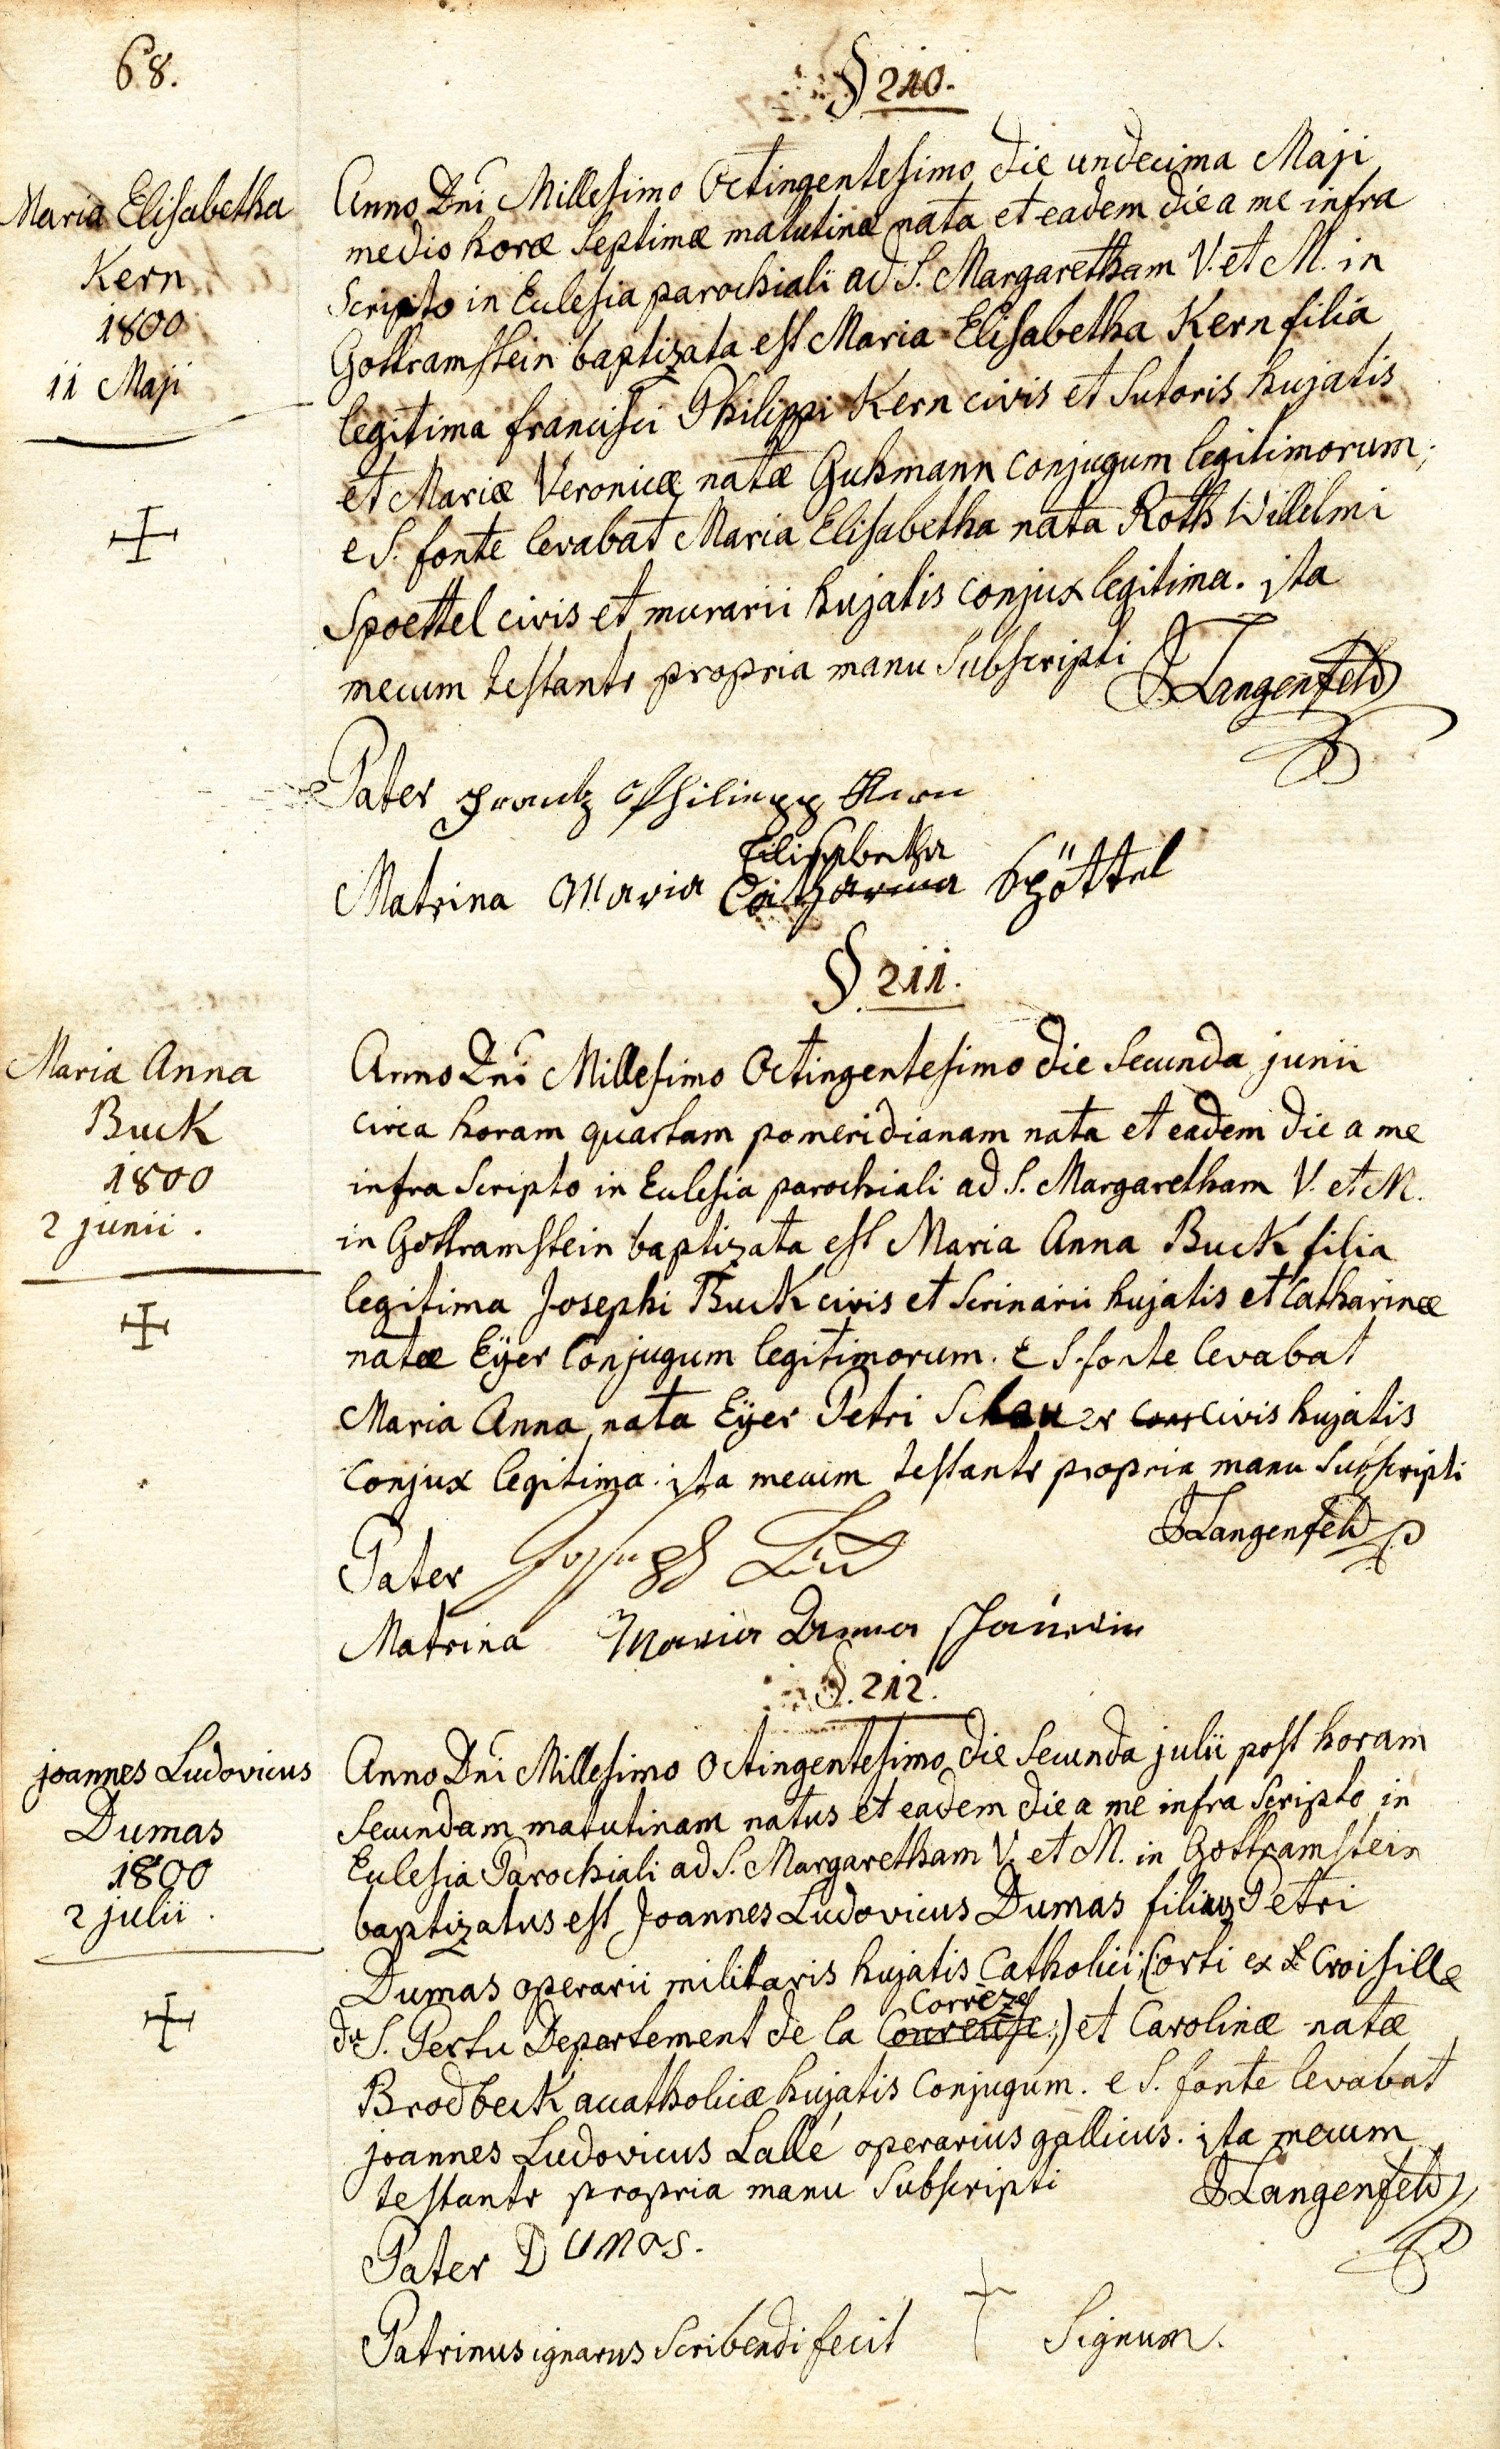 68.
§ 210.
Maria Elisabetha
Kern
1800
11 Maji
Anno Dni Millesimo Octingentesimo die undecima Maji
medio horæ septimæ matutinæ nata et eadem die a me infra
scripto in Eclesia parochiali ad S. Margaretham V. et M. in
Gottramstein baptizata est Maria Elisabetha Kern filia
legitima francisci Philippi Kern civis et Sutoris hujatis
et Mariæ Veronicæ natæ Guhmann conjugum legitimorum;
e S. fonte levabat Maria Elisabetha nata Roth Willelmi
Spoettel civis et murarii hujatis conjux legitima. ita
mecum testantr propria manu Subscripti
Langenfeld
Pater Frantz Philipp Kern
Elisabetha
Matrina Maria Catharina Spöttel
§ 211.
Maria Anna
Buck
1800
2 junii.
Anno Dni Millesimo Octingentesimo die Secunda junii
circa horam quartam pomeridianam nata et eadem die a me
infra Scripto in Eclesia parochiali ad S. Margaretham V. et M.
in Gottramstein baptizata est Maria Anna Buck filia
legitima Josephi Buck civis et Scrinarii hujatis et Catharinæ
natæ Eÿer Conjugum legitimorum. E S. fonte levabat
Maria Anna nata Eÿer Petri Schauer civis hujatis
conjux legitima. ita mecum testantr propria manu Subscripti
Langenfeld
Pater Joseph
Matrina Maria Anna Schauerin
§. 212.
joannes Ludovicus
Dumas
1800
2 julii.
Anno Dni Millesimo Octingentesimo die Secunda julii post horam
Secundam matutinam natus et eadem die a me infra Scripto in
Eclesia Parochiali ad S. Margaretham V. et M. in Gottramstein
baptizatus est Joannes Ludovicus Dumas filius Petri
Dumas operarii militaris hujatis Catholici (:orti ex Croisille
Corrèze
de S. Pertu Departement de la Courense:) et Carolinæ natæ
Brodbeck acatholicæ hujatis Conjugum. e S. fonte levabat
joannes Ludovicus Lallé operarius gallicus. ita mecum
testantr propria manu Subscripti
Langenfeld
Pater Dumas.
Patrinus ignarus Scribendi fecit † Signum.